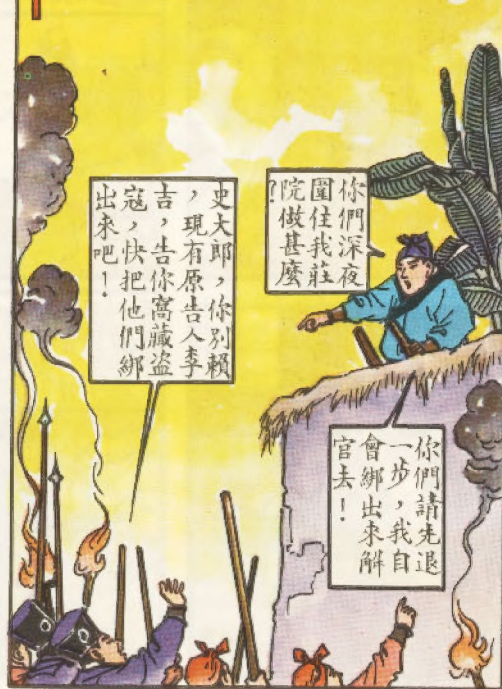 你們深夜
圍住我莊
院做甚麼
?
史大郎，你別賴
，現有原告人李
吉，告你窩藏盜
寇，快把他們綁
出來吧！
你們請先退
一步，我自
會綁出來解
官去！